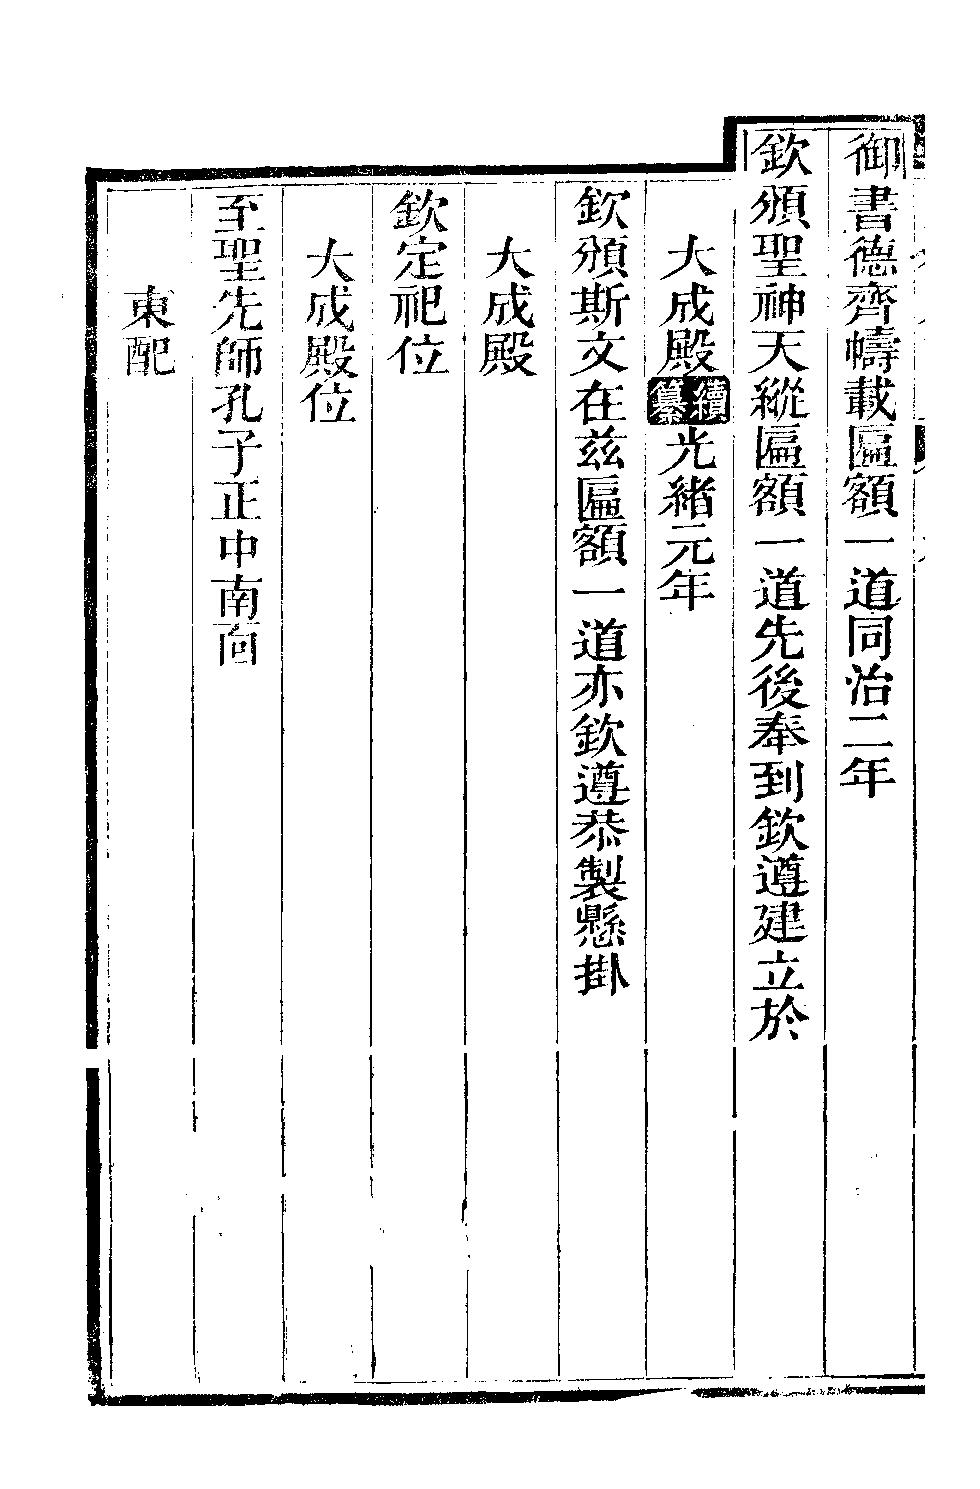 御書德齊幬載匾額一道同治二年
欽頒聖神天縱匾額一道先後奉到欽遵建立於
大成殿續纂光緒元年
欽頒斯文在茲匾額一道亦欽遵恭製懸掛
大成殿
欽定祀位
大成殿位
至聖先師孔子正中南向
東配